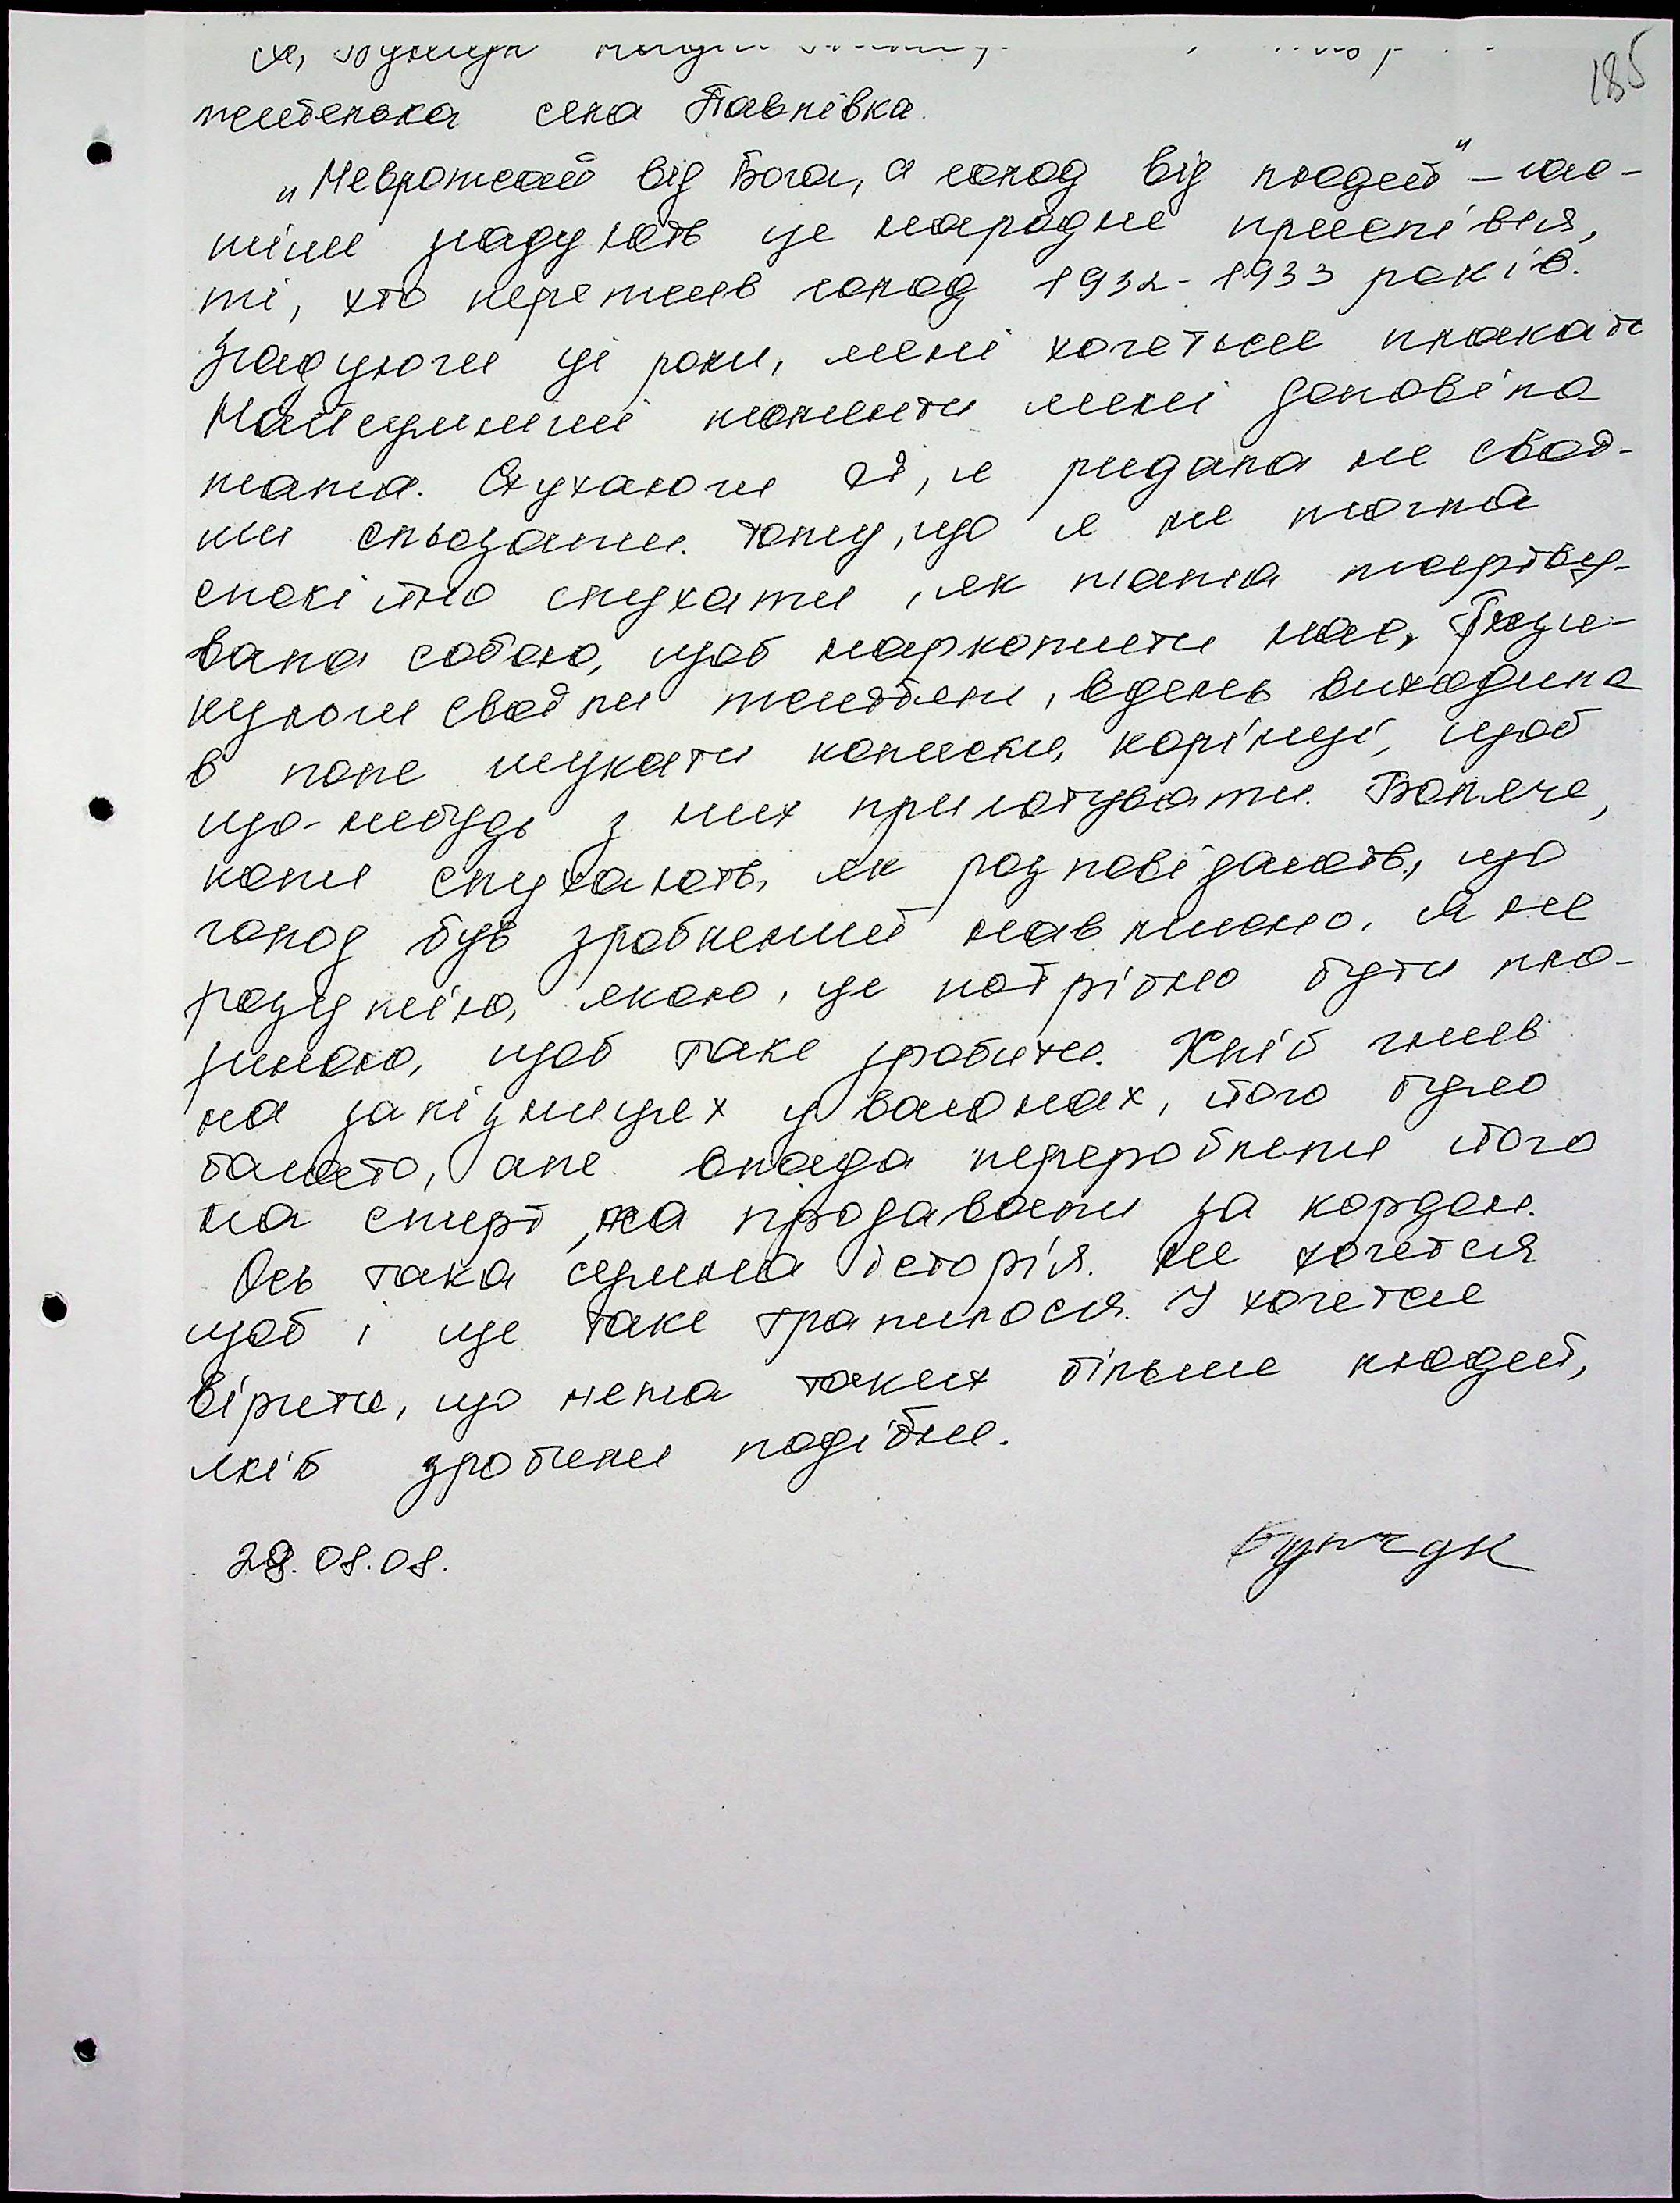 185
Я,
жителька села Павлівка.
„Неврожай від Бога, а голод від людей" – час-
тіше згадують це народне прислів'я,
ті, хто пережив голод 1932-1933 років.
Згадуючи ці роки, мені хочеться плакати
Найсумніші моменти мені доповіла
мама. Слухаючи її, я ридала не своï-
ми сльозами. Тому, що я не могла
спокійно слухати, як мама жертву-
вала собою, щоб наркомити нас. Ризи-
куючи своїм життям, вдень виходила
в поле шукати колиски, корінці, щоб
що-небудь з них приготувати. Боляче,
коли слухають, як розповідають, що
голод був зроблений навмисно. Я не
розумію, якою, це потрібно бути лю-
диною, щоб таке зробити. Хліб гнив
на залізницях у вагонах, його було
багато, але влада переробляли його
на спирт, на продавали за кордон.
Ось така сумна історія. Не хочеться
щоб і ще таке трапилося. І хочеться
вірити, що нема таких більше людей,
якіб зробили подібне.
28.08.08.